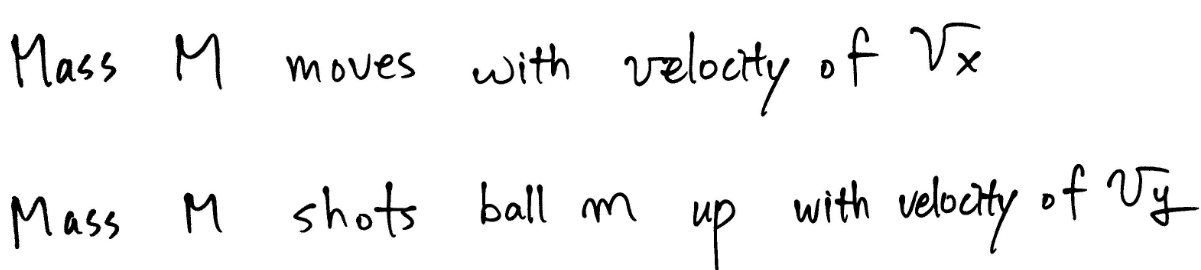 Mass M moves with velocity of Vx
Mass M shots ball m up with velocity of Vy